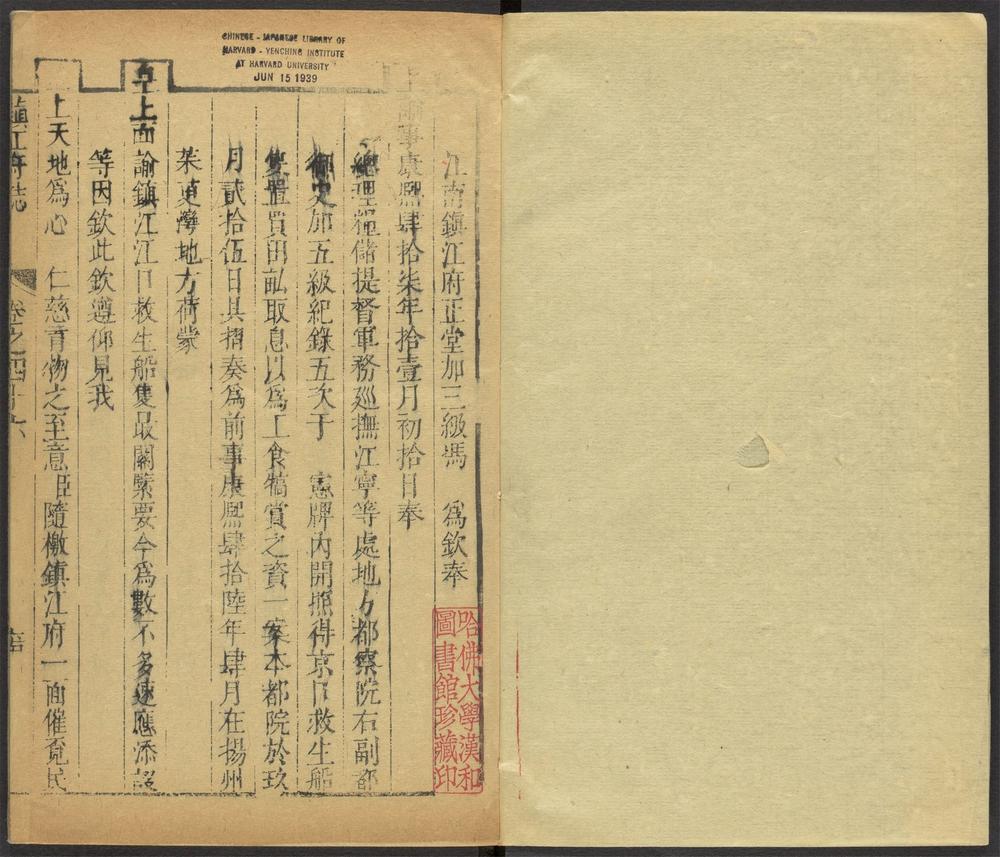 CHINESE - JAPANESE LIBRARY OF
HARVARD - YENCHING INSTITUTE
AT HARVARD UNIVERSITY
JUN 15 1939
江南鎮江府正堂加三級馮 為欽奉
上諭事康熙肆拾柒年拾壹月初拾日奉
總理糧儲提督軍務巡撫江寧等處地方都察院右副都
御史加五級紀錄五次于 憲牌內開照得京口救生船
隻置買田畆取息以爲工食犒賞之資一案本都院於玖
月貳拾伍日具摺奏爲前事康熙肆拾陸年肆月在揚州
茱萸灣地方荷蒙
皇上面諭鎮江江口救生船隻最關緊要今爲數不多速應添設
等因欽此欽遵仰見我
皇上天地爲心 仁慈育物之至意臣隨檄鎮江府一面催覔民
鎮江府志
卷之四十六
哈佛大學漢和
圖書館珍藏印